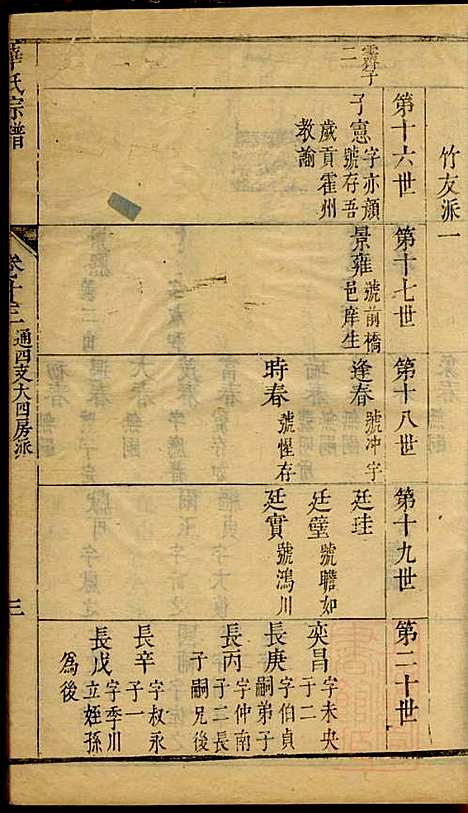 竹友派一
第十六世
第十七世
第十八世
第十九世
第二十世
霽子二
子憲
字亦顔
號存吾
歲貢霍州
教諭
景雍
號前橋
邑庠生
逢春
號冲宇
時春
號惺存
廷珪
廷璧
號瞻如
廷實
號鴻川
奕昌
字未央
子二
長庚
字伯貞
嗣弟子
長丙
字仲南
子二長
子嗣兄後
長辛
字叔永
子一
長戊
字季川
立姪孫
為後
氏宗譜
卷十三
通四支大四房派
三